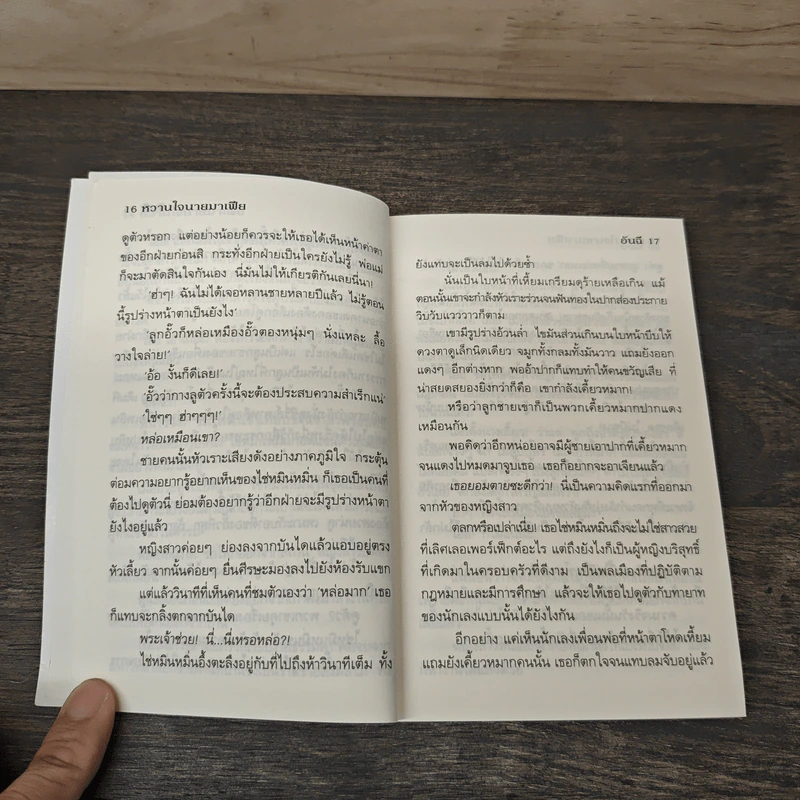 16 หวานใจนายมาเฟีย
ดูตัวหรอก แต่อย่างน้อยก็ควรจะให้เธอได้เห็นหน้าค่าตา
ของอีกฝ่ายก่อนสิ กระทั่งอีกฝ่ายเป็นใครยังไม่รู้ พ่อแม่
ก็จะมาตัดสินใจกันเอง นี่มันไม่ให้เกียรติกันเลยนี่นา!
'ฮ่าๆ! ฉันไม่ได้เจอหลานชายหลายปีแล้ว ไม่รู้ตอน
นี้รูปร่างหน้าตาเป็นยังไง'
'ลูกอั๊วก็หล่อเหมืองอั๊วตองหนุ่มๆ นั่งแหละ ลื้อ
วางใจล่าย!'
'อ้อ งั้นก็ดีเลย!'
'อั๊วว่ากางลูตัวครั้งนี้จะต้องประสบความสำเร็กแน่'
'ใช่ๆๆ ฮ่าๆๆๆ!'
หล่อเหมือนเขา?
ชายคนนั้นหัวเราะเสียงดังอย่างภาคภูมิใจ กระตุ้น
ต่อมความอยากรู้อยากเห็นของไช่หมินหมิ่น ก็เธอเป็นคนที่
ต้องไปดูตัวนี่ ย่อมต้องอยากรู้ว่าอีกฝ่ายจะมีรูปร่างหน้าตา
ยังไงอยู่แล้ว
หญิงสาวค่อยๆ ย่องลงจากบันไดแล้วแอบอยู่ตรง
หัวเลี้ยว จากนั้นค่อยๆ ยื่นศีรษะมองลงไปยังห้องรับแขก
แต่แล้ววินาทีที่เห็นคนที่ชมตัวเองว่า 'หล่อมาก' เธอ
ก็แทบจะกลิ้งตกจากบันได
พระเจ้าช่วย! นี่...นี่เหรอหล่อ?!
ไช่หมินหมิ่นอึ้งตะลึงอยู่กับที่ไปถึงห้าวินาทีเต็ม ทั้ง
อันฉี 17
ยังแทบจะเป็นลมไปด้วยซ้ำ
นั่นเป็นใบหน้าที่เหี้ยมเกรียมดุร้ายเหลือเกิน แม้
ตอนนั้นเขาจะกำลังหัวเราะร่วนจนฟันทองในปากส่องประกาย
วิบวับแวววาวก็ตาม
เขามีรูปร่างอ้วนล่ำ ไขมันส่วนเกินบนใบหน้าบีบให้
ดวงตาดูเล็กนิดเดียว จมูกทั้งกลมทั้งมันวาว แถมยังออก
แดงๆ อีกต่างหาก พออ้าปากก็แทบทำให้คนขวัญเสีย ที่
น่าสยดสยองยิ่งกว่าก็คือ เขากำลังเคี้ยวหมาก!
หรือว่าลูกชายเขาก็เป็นพวกเคี้ยวหมากปากแดง
เหมือนกัน
พอคิดว่าอีกหน่อยอาจมีผู้ชายเอาปากที่เคี้ยวหมาก
จนแดงไปหมดมาจูบเธอ เธอก็อยากจะอาเจียนแล้ว
เธอยอมตายซะดีกว่า! นี่เป็นความคิดแรกที่ออกมา
จากหัวของหญิงสาว
ตลกหรือเปล่าเนี่ย! เธอไช่หมินหมิ่นถึงจะไม่ใช่สาวสวย
ที่เลิศเลอเพอร์เฟ็กต์อะไร แต่ถึงยังไงก็เป็นผู้หญิงบริสุทธิ์
ที่เกิดมาในครอบครัวที่ดีงาม เป็นพลเมืองที่ปฏิบัติตาม
กฎหมายและมีการศึกษา แล้วจะให้เธอไปดูตัวกับทายาท
ของนักเลงแบบนั้นได้ยังไงกัน
อีกอย่าง แค่เห็นนักเลงเพื่อนพ่อที่หน้าตาโหดเหี้ยม
แถมยังเคี้ยวหมากคนนั้น เธอก็ตกใจจนแทบลมจับอยู่แล้ว